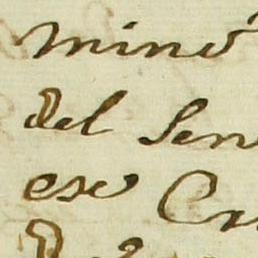 minó
del Sen
ese Cu